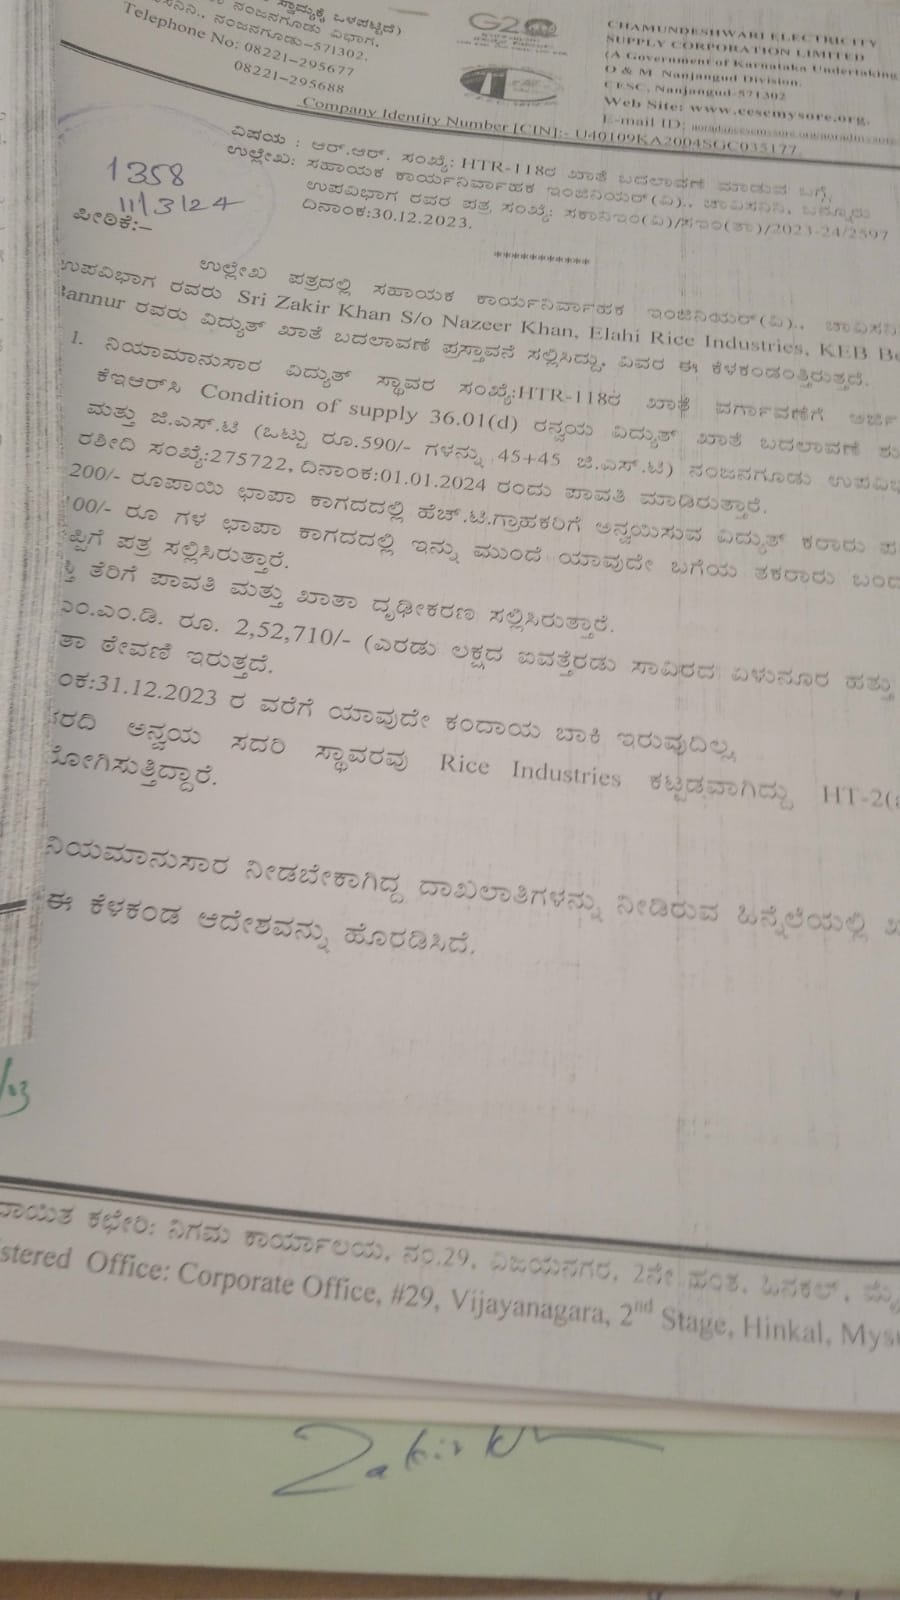 ಸ್ವಾಮ್ಯಕ್ಕೆ ಒಳಪಟ್ಟಿದೆ)
ನಂಜನಗೂಡು ವಿಭಾಗ,
ನಂಜನಗೂಡು-571302.
Telephone No: 08221-295677
08221-295688
G20
CHAMUNDESHWARI ELECTRICITY
SUPPLY CORPORATION LIMITED
(A Government of Karnataka Undertaking
O & M Nanjangud Division.
CESC, Nanjangud-571302
Web Site: www.cescmysore.org.
E-mail ID:
Company Identity Number [CIN]:- U40109KA2004SGC035177
1358
11/3/24
ವಿಷಯ : ಆರ್.ಆರ್. ಸಂಖ್ಯೆ: HTR-118ರ ಖಾತೆ ಬದಲಾವಣೆ ಮಾಡುವ ಬಗ್ಗೆ.
ಉಲ್ಲೇಖ: ಸಹಾಯಕ ಕಾರ್ಯನಿರ್ವಾಹಕ ಇಂಜಿನಿಯರ್(ವಿ)., ಚಾವಿಸನಿನಿ, ಬನ್ನೂರು
ಉಪವಿಭಾಗ ರವರ ಪತ್ರ ಸಂಖ್ಯೆ: ಸಕಾನಿಇಂ(ವಿ)/ಸಇಂ(ತಾ)/2023-24/2597
ದಿನಾಂಕ:30.12.2023.
ಪೀಠಿಕೆ:-
***********
ಉಲ್ಲೇಖ ಪತ್ರದಲ್ಲಿ ಸಹಾಯಕ ಕಾರ್ಯನಿರ್ವಾಹಕ ಇಂಜಿನಿಯರ್(ವಿ)., ಚಾವಿಸನಿ
ಉಪವಿಭಾಗ ರವರು Sri Zakir Khan S/o Nazeer Khan, Elahi Rice Industries, KEB Be
Bannur ರವರು ವಿದ್ಯುತ್ ಖಾತೆ ಬದಲಾವಣೆ ಪ್ರಸ್ತಾವನೆ ಸಲ್ಲಿಸಿದ್ದು, ವಿವರ ಈ ಕೆಳಕಂಡಂತ್ತಿರುತ್ತದೆ.
1. ನಿಯಾಮಾನುಸಾರ ವಿದ್ಯುತ್ ಸ್ಥಾವರ ಸಂಖ್ಯೆ:HTR-118ರ ಖಾತೆ ವರ್ಗಾವಣೆಗೆ ಅರ್ಜಿ
ಕೆಇಆರ್‌ಸಿ Condition of supply 36.01(d) ರನ್ವಯ ವಿದ್ಯುತ್ ಖಾತೆ ಬದಲಾವಣೆ ಶು
ಮತ್ತು ಜಿ.ಎಸ್.ಟಿ (ಒಟ್ಟು ರೂ.590/- ಗಳನ್ನು 45+45 ಜಿ.ಎಸ್.ಟಿ) ನಂಜನಗೂಡು ಉಪವಿಭ
ರಶೀದಿ ಸಂಖ್ಯೆ:275722, ದಿನಾಂಕ:01.01.2024 ರಂದು ಪಾವತಿ ಮಾಡಿರುತ್ತಾರೆ.
200/- ರೂಪಾಯಿ ಛಾಪಾ ಕಾಗದದಲ್ಲಿ ಹೆಚ್.ಟಿ.ಗ್ರಾಹಕರಿಗೆ ಅನ್ವಯಿಸುವ ವಿದ್ಯುತ್ ಕರಾರು ಪ
00/- ರೂ ಗಳ ಛಾಪಾ ಕಾಗದದಲ್ಲಿ ಇನ್ನು ಮುಂದೆ ಯಾವುದೇ ಬಗೆಯ ತಕರಾರು ಬಂದ
ಪ್ಪಿಗೆ ಪತ್ರ ಸಲ್ಲಿಸಿರುತ್ತಾರೆ.
ತೆರಿಗೆ ಪಾವತಿ ಮತ್ತು ಖಾತಾ ದೃಢೀಕರಣ ಸಲ್ಲಿಸಿರುತ್ತಾರೆ.
ಎಂ.ಎಂ.ಡಿ. ರೂ. 2,52,710/- (ಎರಡು ಲಕ್ಷದ ಐವತ್ತೆರಡು ಸಾವಿರದ ಏಳುನೂರ ಹತ್ತು
ತಾ ಠೇವಣಿ ಇರುತ್ತದೆ.
ಂಕ:31.12.2023 ರ ವರೆಗೆ ಯಾವುದೇ ಕಂದಾಯ ಬಾಕಿ ಇರುವುದಿಲ್ಲ,
ವರದಿ ಅನ್ವಯ ಸದರಿ ಸ್ಥಾವರವು Rice Industries ಕಟ್ಟಡವಾಗಿದ್ದು HT-2(
ಯೋಗಿಸುತ್ತಿದ್ದಾರೆ.
ನಿಯಮಾನುಸಾರ ನೀಡಬೇಕಾಗಿದ್ದ ದಾಖಲಾತಿಗಳನ್ನು ನೀಡಿರುವ ಹಿನ್ನೆಲೆಯಲ್ಲಿ
ಈ ಕೆಳಕಂಡ ಆದೇಶವನ್ನು ಹೊರಡಿಸಿದೆ.
/03
ದಾಯಿತ ಕಛೇರಿ: ನಿಗಮ ಕಾರ್ಯಾಲಯ, ನಂ.29, ವಿಜಯನಗರ, 2ನೇ ಹಂತ, ಹಿನಕಲ್, ಮೈ
istered Office: Corporate Office, #29, Vijayanagara, 2nd Stage, Hinkal, Mys
Zakir kh